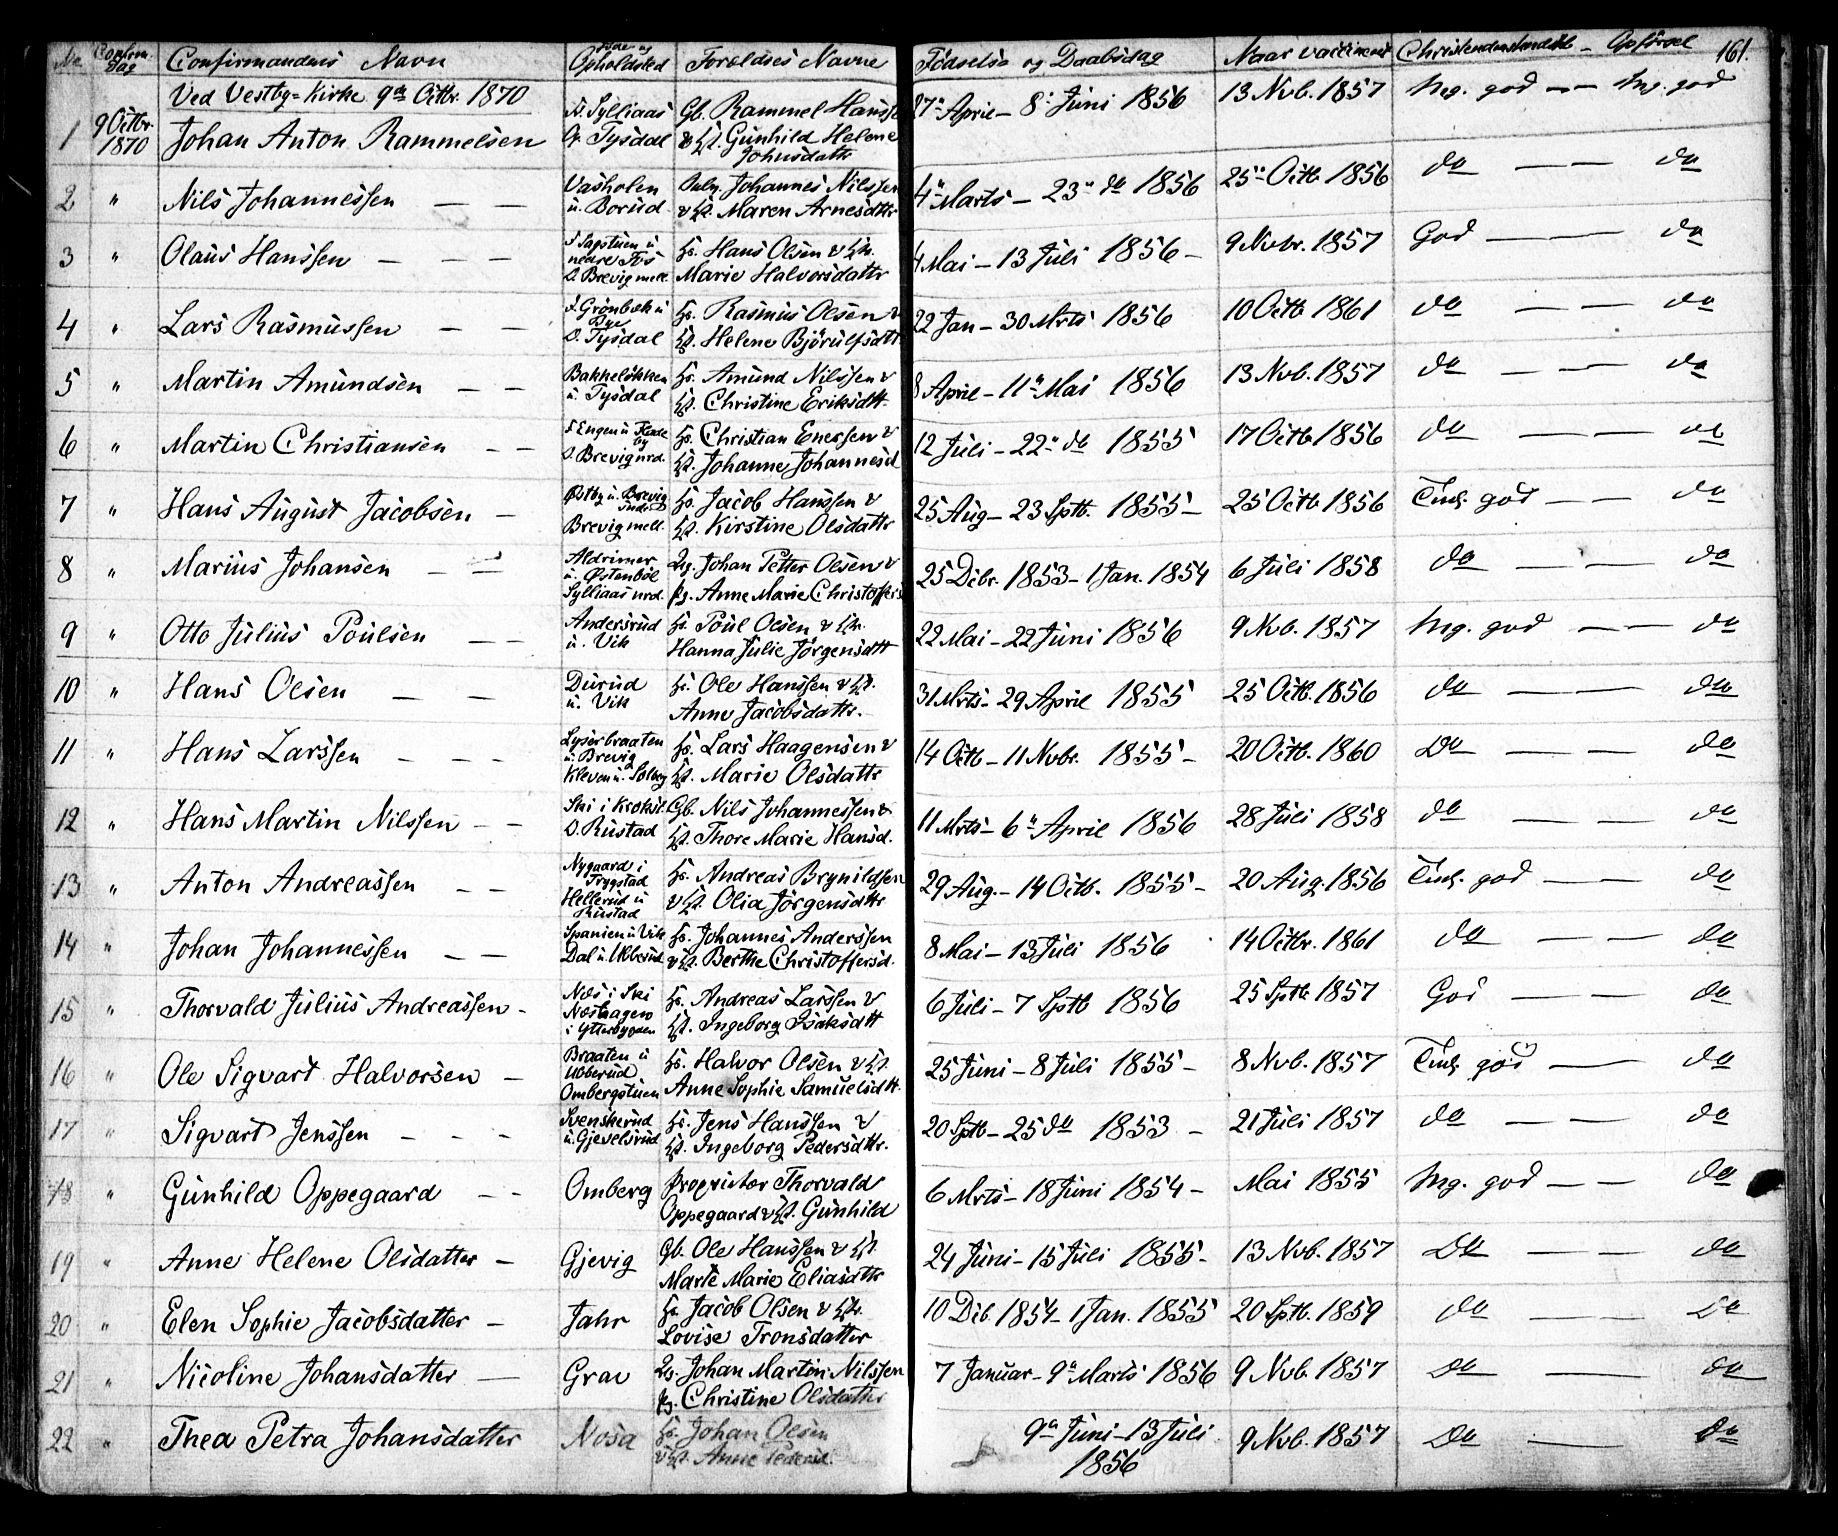 No. Confirm. dag Confirmandens Navn Føde og Opholdsted Forældres Navne Fødsels og Daabsdag Naar vaccineret Christendomskundsk. Opførsel 161.
Ved Vestby-Kirke 9de Octbr. 1870
1 9 Octbr. 1870 Johan Anton Rammelsen F. Sylliaas O. Tysdal Gb. Rammel Hanssen & Hst. Gunhild Helene Johnsdattr 27de April - 8de Juni 1856 13 Nvb. 1857 Mg. god - - Mg. god
2 " Nils Johannessen - - Vasholen u. Borud Johannes Nilssen & Hst. Maren Arnesdttr 4de Marts - 23de do 1856 25de Octb. 1856 do - - do
3 " Olaus Hanssen - - - F. Sagstuen u. nedre Fos O. Brevig mell. Hs. Hans Olsen & Hst. Marie Halvorsdattr 4 Mai - 13 Juli 1856 - 9 Nvbr. 1857 God - - do
4 " Lars Rasmussen - - F. Grønbæk u. Bye O. Tysdal Hs. Rasmus Olsen & Hst. Helene Bjørulfsdtt. 22 Jan - 30 Mrts 1856 10 Octb 1861 do - - do
5 " Martin Amundsen - - Bakkeløkken u. Tysdal Hs. Amund Nilssen & Hst. Christine Eriksdtt. 8 April - 11de Mai 1856 13 Nvb. 1857 do - - do
6 " Martin Christiansen - - F. Engen u. by O. Brevig nrd. Hs. Christian Enersen & Hst. Johanne Johannesd 12 Juli - 22de do 1855 17 Octb 1856 do - - do
7 " Hans August Jacobsen - Østby u. Brevig Brevig mell. Hs. Jacob Hanssen & Hst. Kirstine Olsdattr 25 Aug - 23 Sptb. 1855 - 25 Octb 1856 god - - do
8 " Marius Johansen - - Aldrimer u. Østenbøl Sylliaas nrd. Johan Petter Olsen & Pg. Anne Marie Christoffers 25 Debr. 1853 - 1 Jan. 1854 6 Juli 1858 do - - do
9 " Otto Julius Poulsen - - Andersrud u. Vik Hs. Poul Olsen & Hst. Hanna Julie Jørgensdtt 22 Mai - 22 Juni 1856 9 Nvb. 1857 Mg. god - - do
10 " Hans Olsen - - Durud u. Vik Hs. Ole Hanssen & Hst. Anne Jacobsdattr. 31 Mrts - 29 April 1855 25 Octb. 1856 do - - do
11 " Hans Larssen - - - Lyserbraaten u. Brevig Kleven u. Solberg Hs. Lars Haagensen & Hst. Marie Olsdattr 14 Octb - 11 Nvbr. 1855 - 20 Octb. 1860 Do - - do
12 " Hans Martin Nilssen - - Ski i Krokst. O. Rustad Gb. Nils Johannessen & Hst. Thore Marie Hansd. 11 Mrts - 6de April 1856 28 Juli 1858 do - - do
13 " Anton Andreassen - - Nygaard i Trygstad Hellerud u. Rustad Hs. Andreas Brynildsen & Hst. Olia Jørgensdttr 29 Aug. - 14 Octb. 1855 - 20 Aug. 1856 god - - do
14 " Johan Johannessen - - Spanien u. Vik Dal u. Ubberud Hs. Johannes Anderssen & Hst. Berthe Christoffersd. 8 Mai - 13 Juli 1856 14 Octbr. 1861 do - - do
15 " Thorvald Julius Andreassen - Næs i Ski Næshagen i Ytterbygden Hs. Andreas Larssen & Hst. Ingeborg Isaksdtt 6 Juli - 7 Sptb 1856 25 Sptb 1857 God - - do
16 " Ole Sigvart Halvorsen - Braaten u. Ubberud Ombergstuen Hs. Halvor Olsen & Hst. Anne Sophie Samuelsdtt. 25 Juni - 8 Juli 1855 - 8 Nvb. 1857 god - do
17 " Sigvart Jenssen - - - Svenskerud u. Gjevelsrud Hs. Jens Hanssen & Hst. Ingeborg Pedersdttr. 20 Sptb - 25 do 1853 - 21 Juli 1857 do - - do
18 " Gunhild Oppegaard - - Omberg Proprietær Thorvald Oppegaard & Hst. Gunhild 6 Mrts - 18 Juni 1854 - Mai 1855 Mg. god - - do
19 " Anne Helene Olsdatter - Gjevig Gb. Ole Hanssen & Hst. Marte Marie Eliasdttr 24 Juni - 15 Juli 1855 - 13 Nvb. 1857 Do - - do
20 " Elen Sophie Jacobsdatter - Jahr Hs. Jacob Olsen & Hst. Lovise Tronsdatter 10 Deb. 1854 - 1 Jan. 1855 20 Sptb. 1859 do - - Do
21 " Nicoline Johansdatter - Grav Johan Martin Nilssen Pg. Christine Olsdatter 7 Januar - 9de Marts 1856 9 Nvb. 1857 Do - - do
22 " Thea Petra Johansdatter Nosa Hs. Johan Olsen & Hst. Anne Pedersd. 9de Juni - 13 Juli 1856 9 Nvb. 1857 Do - do